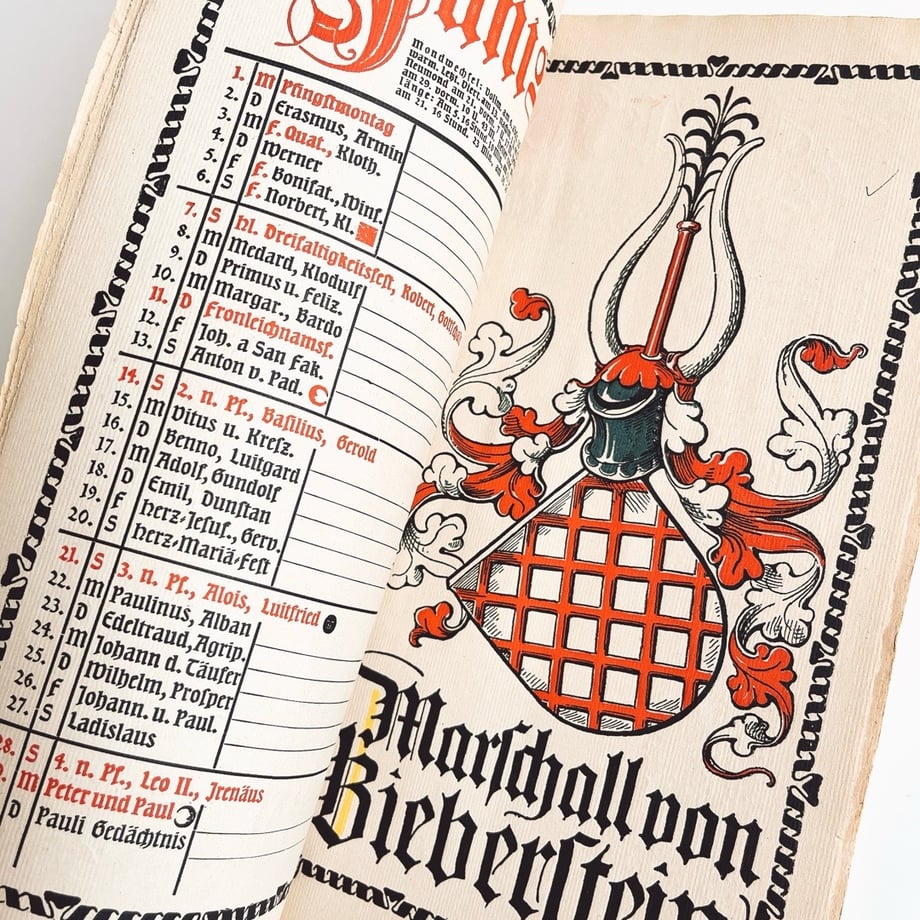 Mondwechsel: Vollm. am
warm. Letzt. Viert. am
Neumond am
am 29. vorm. 10 U. 43 M.
länge: Am 5. 16 Stund.
am 21. 16 Stund. 23 Min.
1. M Pfingstmontag
2. D Erasmus, Armin
3. M F. Quat., Kloth.
4. D Werner
5. F F. Bonifat., Winf.
6. S F. Norbert, Kl.
7. S Hl. Dreifaltigkeitsfest, Robert,
8. M Medard, Klodulf
9. D Primus u. Feliz.
10. M Margar., Bardo
11. D Fronleichnamsf.
12. F Joh. a San Fak.
13. S Anton v. Pad.
14. S 2. n. Pf., Basilius, Gerold
15. M Vitus u. Kresz.
16. D Benno, Luitgard
17. M Adolf, Gundolf
18. D Emil, Dunstan
19. F Herz-Jesuf., Gerv.
20. S Herz-Mariä-Fest
21. S 3. n. Pf., Alois, Luitfried
22. M Paulinus, Alban
23. D Edeltraud, Agrip.
24. M Johann d. Täufer
25. D Wilhelm, Prosper
26. F Johann. u. Paul.
27. S Ladislaus
28. S 4. n. Pf., Leo II., Irenäus
M Peter und Paul
D Pauli Gedächtnis
Marschall von
Bieberstein